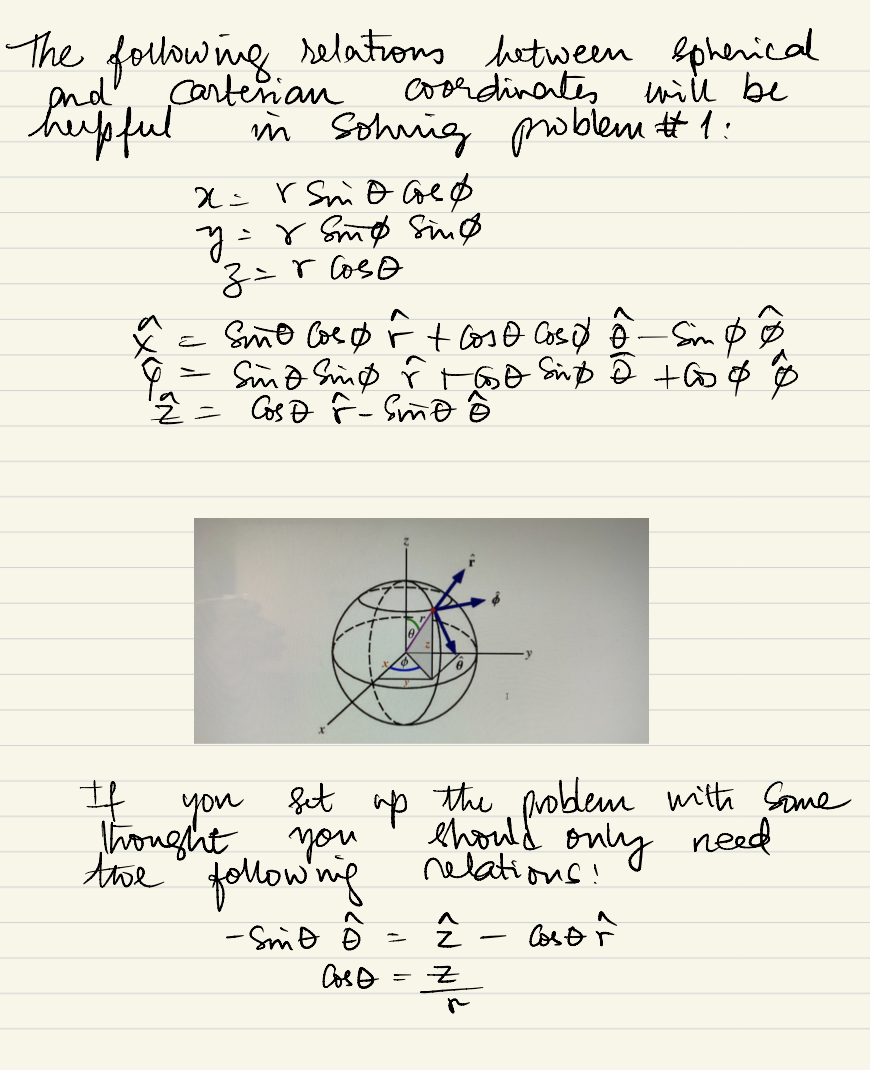 The following relations between spherical
and cartesian coordinates will be
helpful in solving problem # 1:
x = r Sin θ Cos φ
y = r Sin φ Sin φ
z = r Cos θ
x̂ = Sin θ Cos φ r̂ + Cos θ Cos φ θ̂ - Sin φ φ̂
ŷ = Sin θ Sin φ r̂ + Cos θ Sin φ θ̂ + Cos φ φ̂
ẑ = Cos θ r̂ - Sin θ θ̂
z
r̂
φ̂
r
θ
z
y
x
φ
θ̂
y
x
If you set up the problem with some
thought you should only need
the following relations:
- Sin θ θ̂ = ẑ - Cos θ r̂
Cos θ = z/r